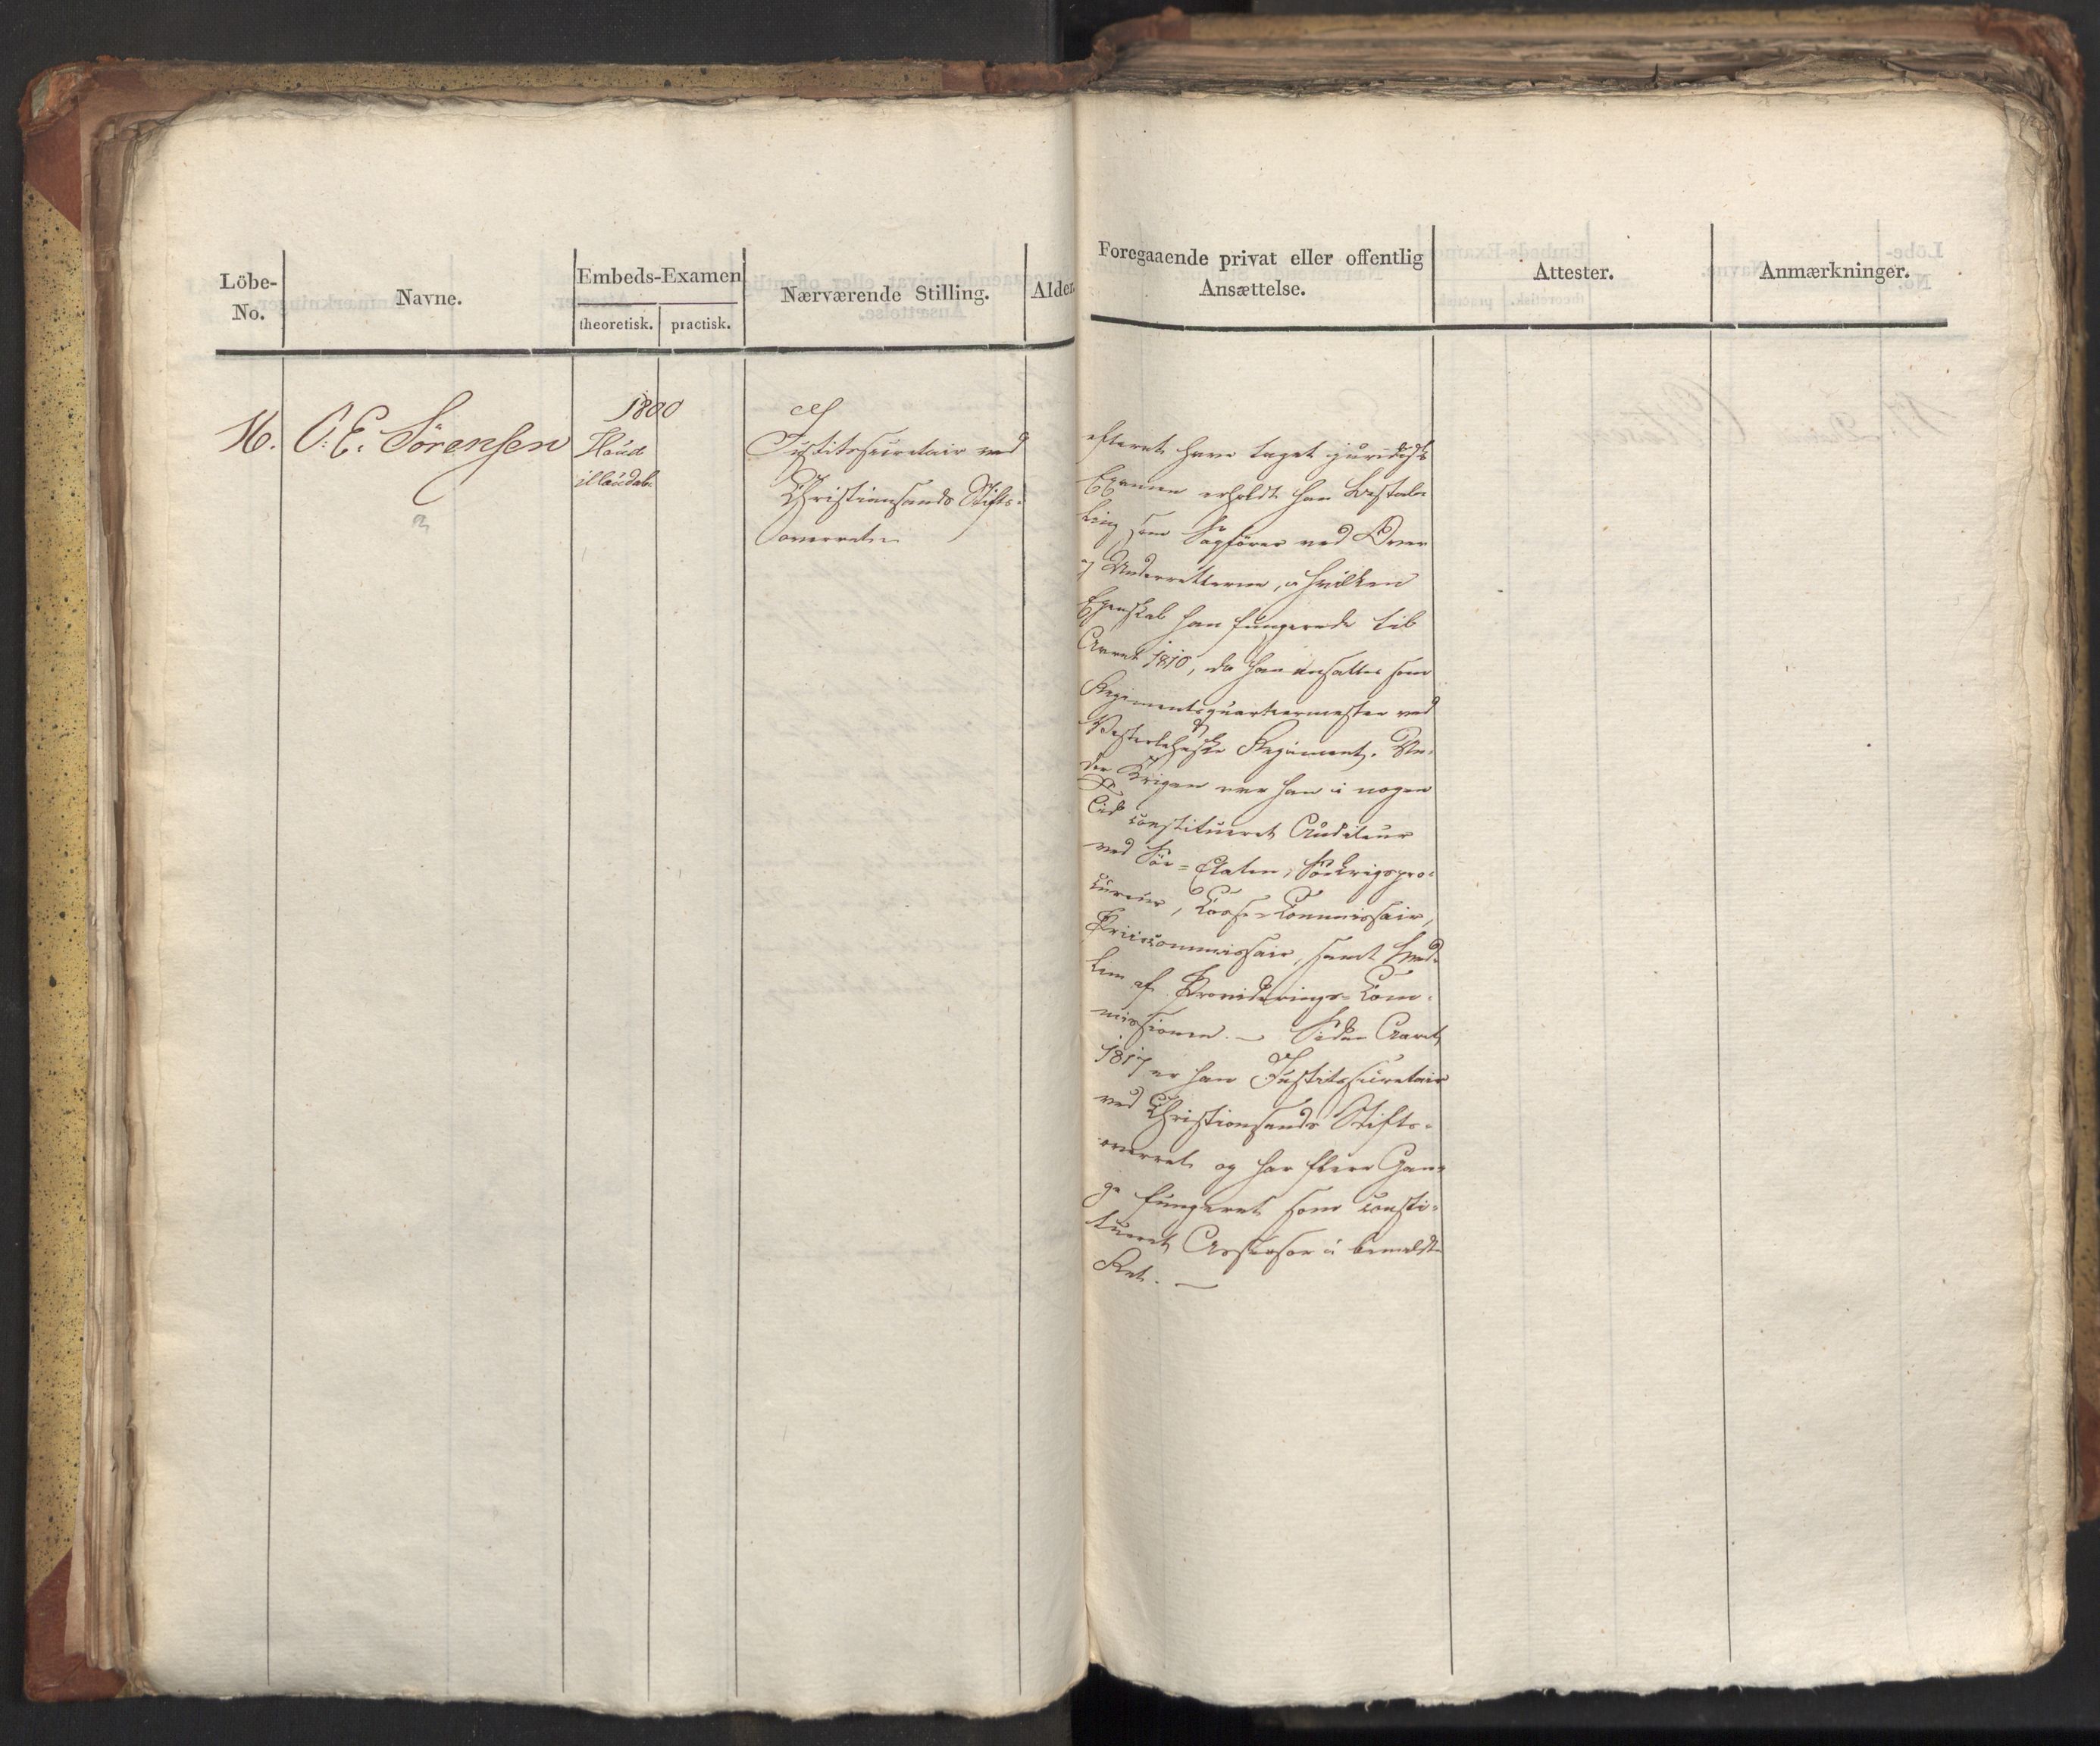 Löbe-
No.
Navne.
Embeds-Examen
theoretisk.
practisk.
Nærværende Stilling.
Alder.
16.
O. E. Sörensen
1800
Haud
illaudab:
Justitssecretair ved
Christiansands Stifts-
overret.
Foregaaende privat eller offentlig
Ansættelse.
Attester.
Anmærkninger.
efterat have taget juridisk
Examen erholdt han Bestal-
ling som Sagförer ved Over
og Underretterne, i hvilken
Egenskab han fungerede til
Aaret 1810, da han ansattes som
Regimentsquarteermester ved
Vesterlehnske Regiment. Un-
der Krigen var han i nogen
Tid constitueret Auditeur
ved Söe-Etaten, Söekrigspro-
cureur, Cassecommissair,
Priiscommissair, samt Med-
lem af Provideringscom-
missionen. – Siden Aaret
1817 er han Justitssecretair
ved Christiansands Stifts-
overret og har flere Gan-
ge fungeret som consti-
tueret Assessor i bemeldte
Ret. –